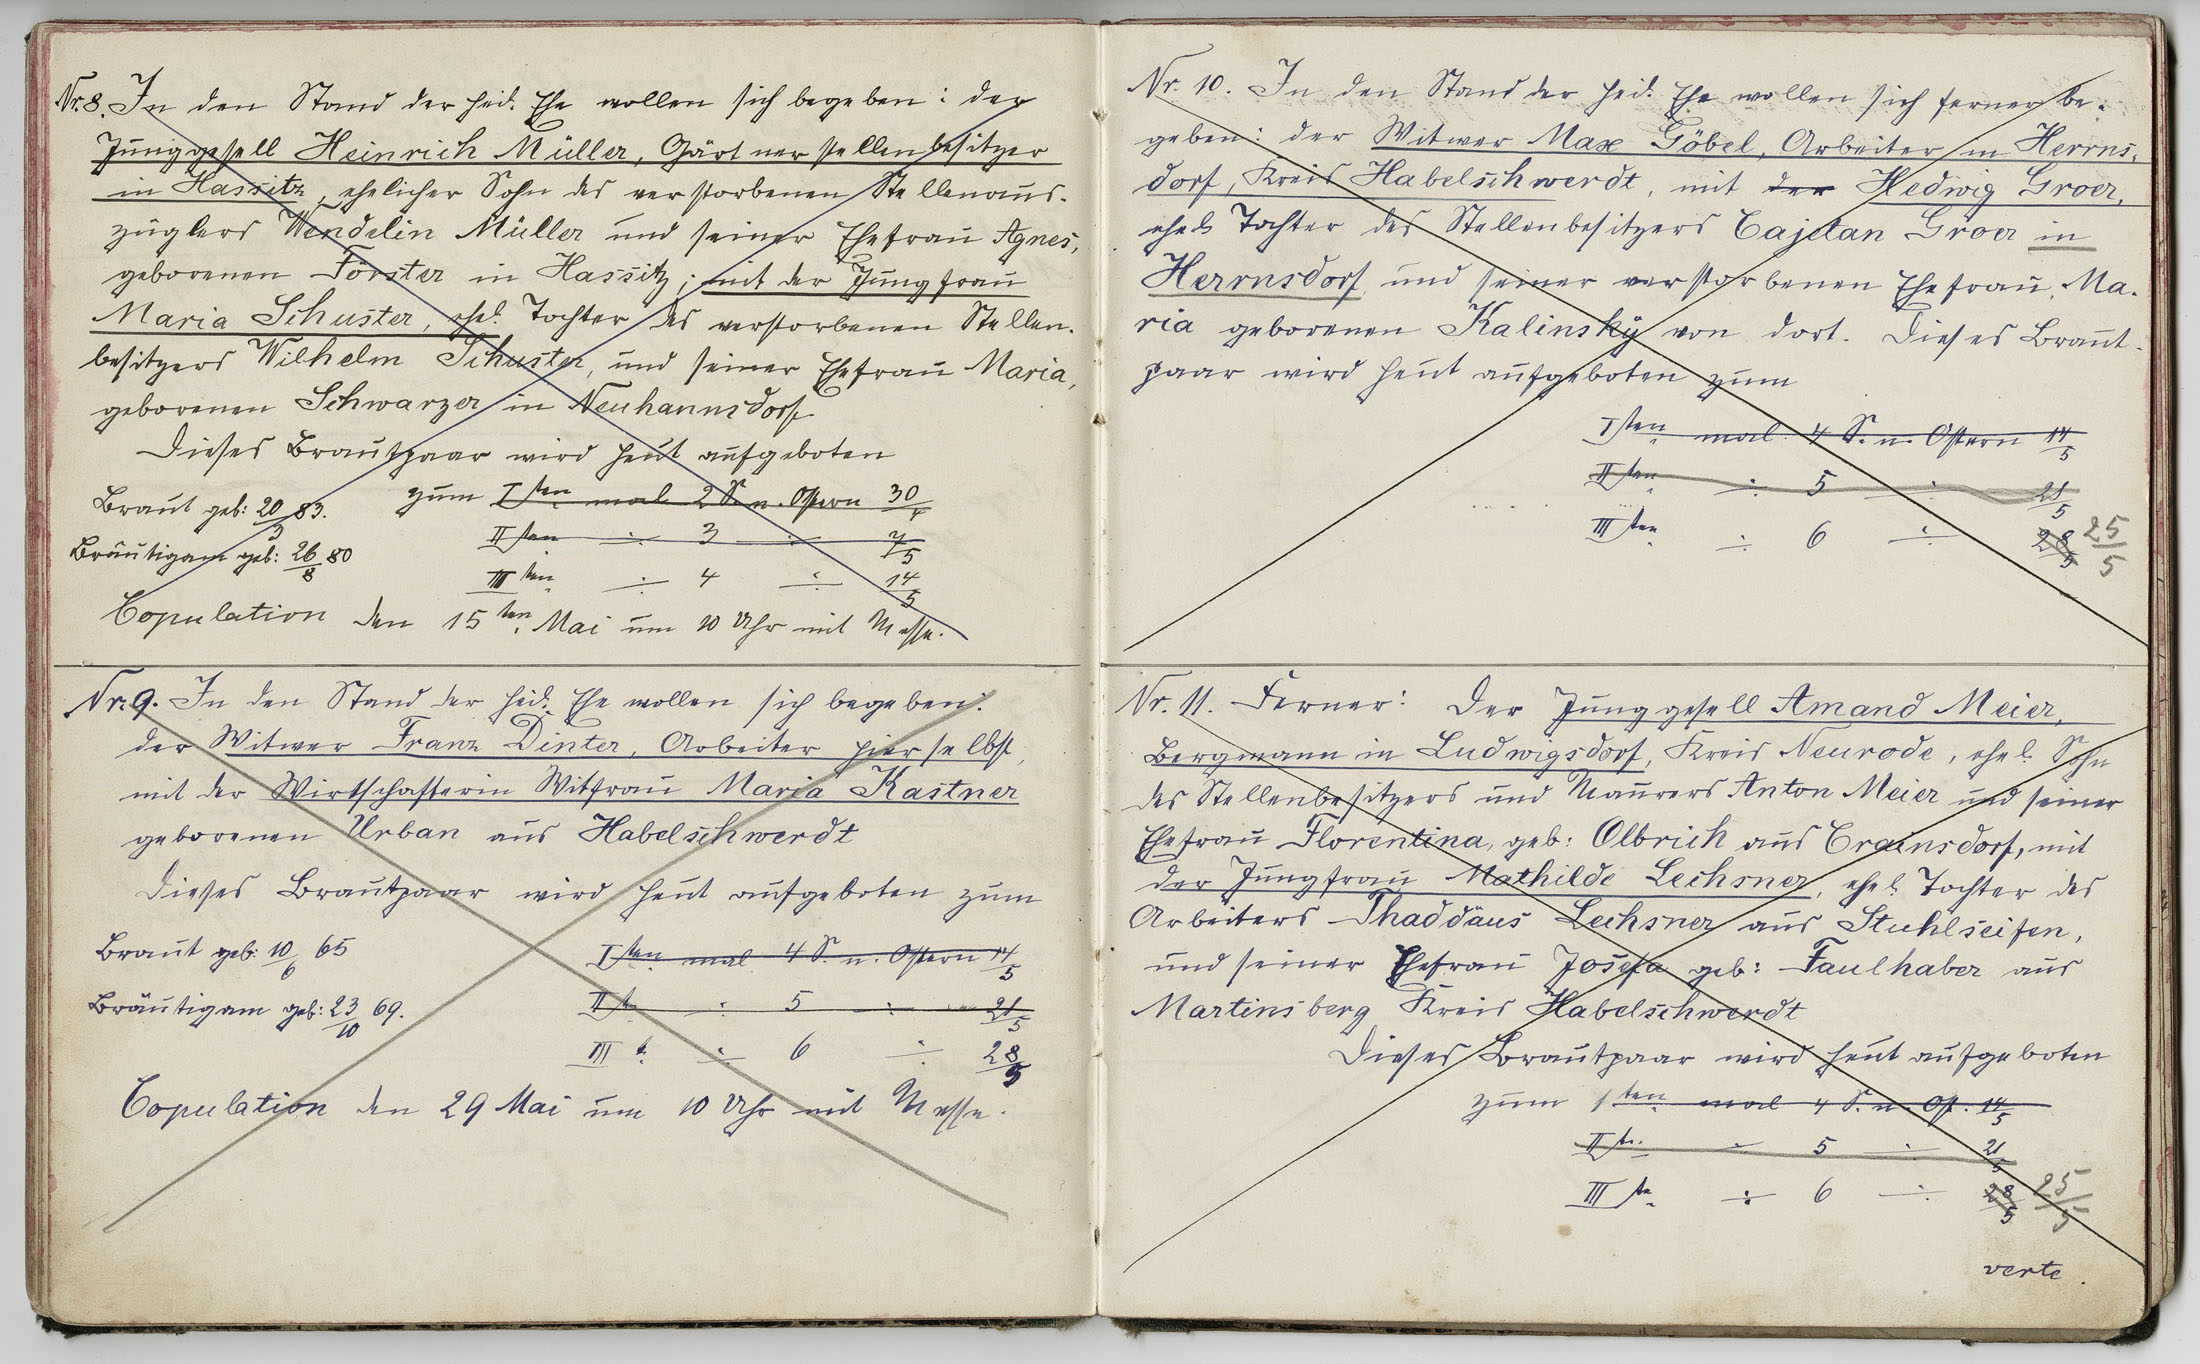 Nr. 8. In den Stand der heil. Ehe wollen sich begeben: der
Junggesell Heinrich Müller, Gärtnerstellenbesitzer
in Hassitz, ehelicher Sohn des verstorbenen Stellenaus-
züglers Wendelin Müller und seiner Ehefrau Agnes,
geborenen Förster in Hassitz; mit der Jungfrau
Maria Schuster, ehel. Tochter des verstorbenen Stellen-
besitzers Wilhelm Schuster, und seiner Ehefrau Maria,
geborenen Schwarzer in Neuhannsdorf.
Dieses Brautpaar wird heut aufgeboten
zum Iten mal 2 S. n. Ostern 30/4
Braut geb: 20/3 83.
IIten ÷ 3 ÷ 7/5
Bräutigam geb: 26/8 80
IIIten ÷ 4 ÷ 14/5
Copulation den 15ten Mai um 10 Uhr mit Messe.
Nr. 9. In den Stand der heil. Ehe wollen sich begeben:
der Witwer Franz Dinter, Arbeiter hierselbst,
mit der Wirtschafterin Witfrau Maria Kastner
geborenen Urban aus Habelschwerdt
Dieses Brautpaar wird heut aufgeboten zum
Braut geb: 10/6 65
Iten mal 4 S. n. Ostern 14/5
Bräutigam geb: 23/10 69.
IIt. ÷ 5 ÷ 21/5
III t. ÷ 6 ÷ 28/5
Copulation den 29 Mai um 10 Uhr mit Messe.
Nr. 10. In den Stand der heil. Ehe wollen sich ferner be-
geben: der Witwer Max Göbel, Arbeiter in Herrns-
dorf, Kreis Habelschwerdt, mit der Hedwig Groer,
ehel. Tochter des Stellenbesitzers Cajetan Groer in
Herrnsdorf und seiner verstorbenen Ehefrau, Ma-
ria geborenen Kalinsky von dort. Dieses Braut-
paar wird heut aufgeboten zum
Iten mal 4 S. n. Ostern 14/5
IIten ÷ 5 ÷ 21/5
IIIten ÷ 6 ÷ 28/5 25/5
Nr. 11. Ferner: Der Junggesell Amand Meier,
Bergmann in Ludwigsdorf, Kreis Neurode, ehel. Sohn
des Stellenbesitzers und Maurers Anton Meier und seiner
Ehefrau Florentina, geb: Olbrich aus Crainsdorf, mit
der Jungfrau Mathilde Lechsner, ehel. Tochter des
Arbeiters Thaddäus Lechsner aus Stuhlseifen,
und seiner Ehefrau Josefa geb: Faulhaber aus
Martinsberg Kreis Habelschwerdt
Dieses Brautpaar wird heut aufgeboten
zum 1ten mal 4 S. n. Ost. 14/5
IIt. ÷ 5 ÷ 21/5
III te. ÷ 6 ÷ 28/5 25/5
verte.